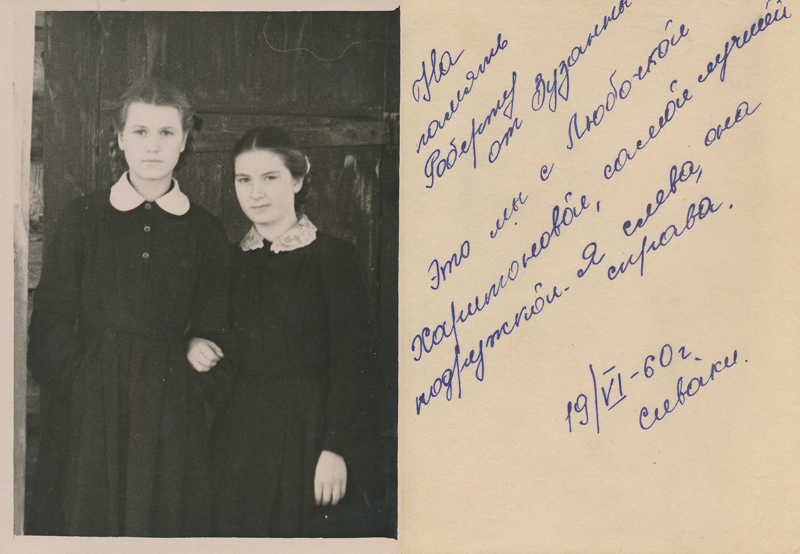 На
память
Роберту
от Зузанны
Это мы с Любочкой
Харитоновой, самой лучшей
подружкой. Я слева, она
справа.
19/VI-60 г.
Сиваки.